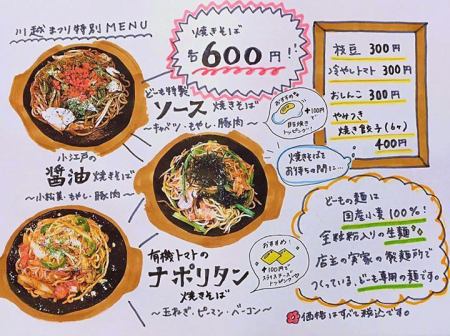 川越まつり特別MENU
焼きそば
各600円!!
どーも特製
ソース焼きそば
〜キャベツ・もやし・豚肉〜
おすすめ
+100円で
目玉焼き
トッピング!!
小江戸の
醤油焼きそば
〜小松菜・もやし・豚肉〜
焼きそばを
お待ちの間に…
枝豆 300円
冷やしトマト 300円
おしんこ 300円
やみつき
焼き餃子(6ヶ)
400円
有機トマトの
ナポリタン
焼きそば
〜玉ねぎ・ピーマン・ベーコン〜
おすすめ!
+100円で
スライスチーズ
トッピング
どーもの麺は
国産小麦100%!
全粒粉入りの生麺
店主の実家の製麺所で
つくっている、どーも専用の麺です。
価格はすべて税込です。